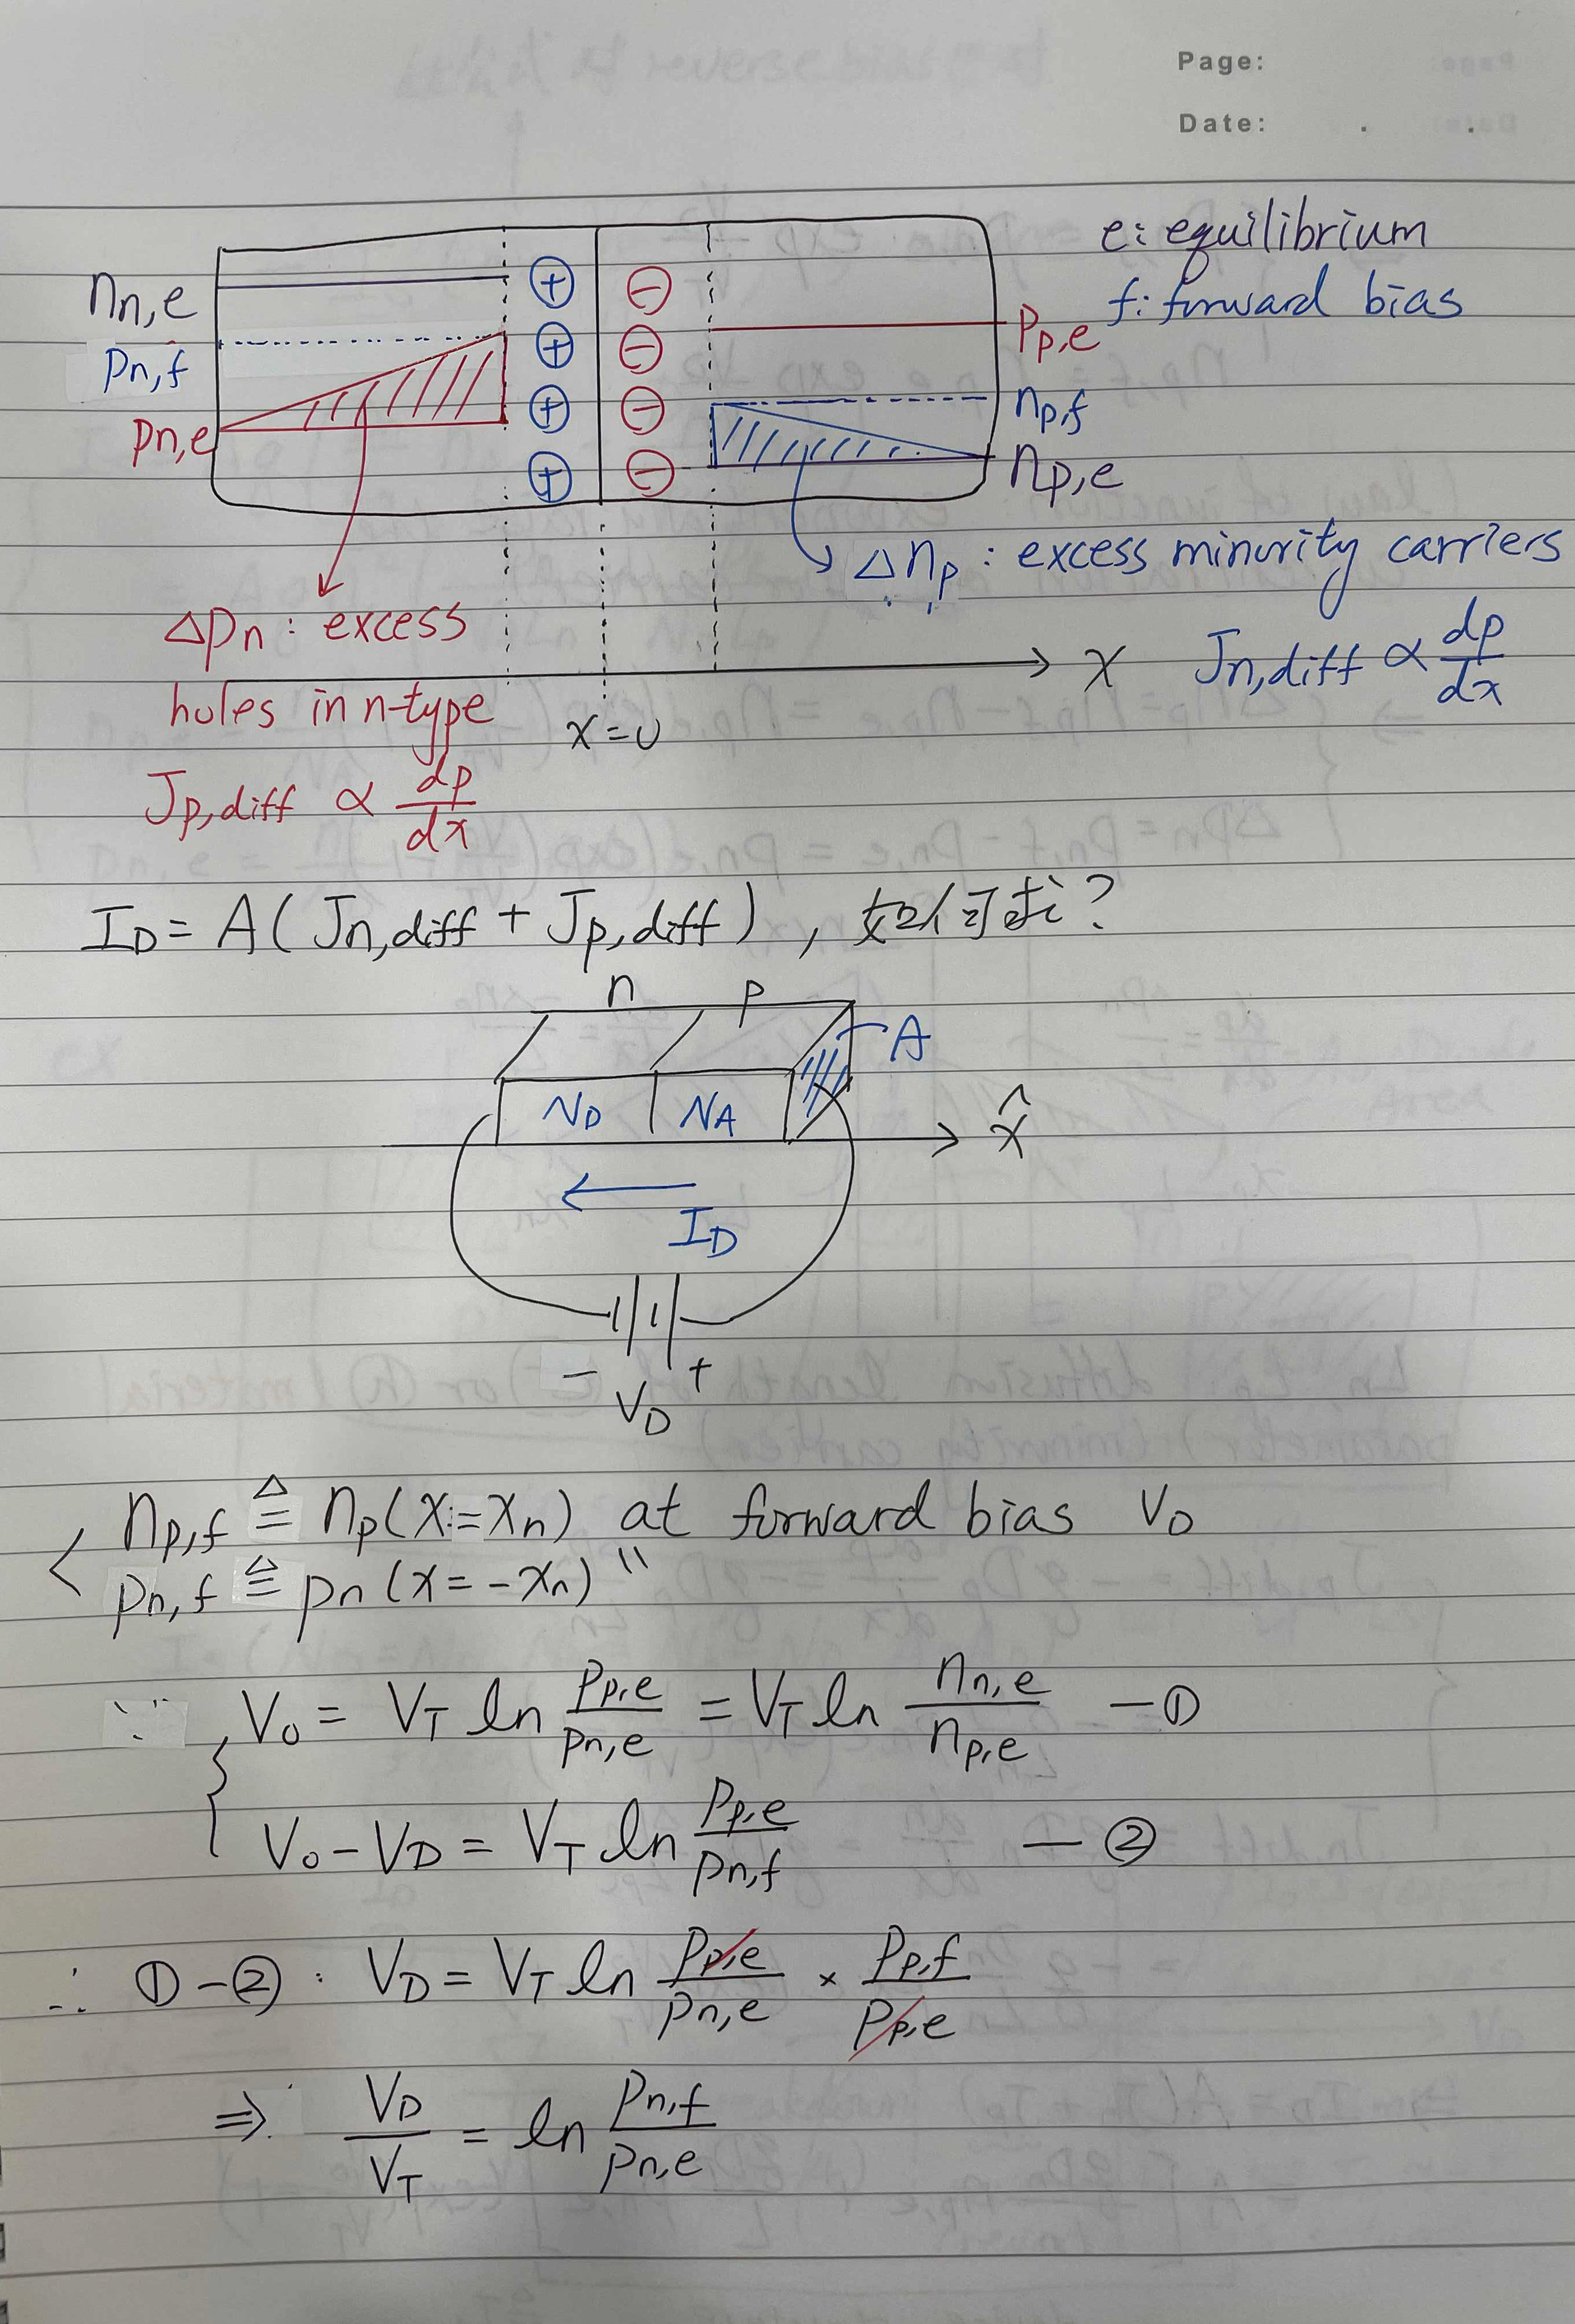 Page:
Date: . .
e: equilibrium
f: forward bias
nn,e
pn,f
pn,e
⊕ ⊖
⊕ ⊖
⊕ ⊖
⊕ ⊖
Pp,e
np,f
np,e
Δnp : excess minority carriers
Δpn : excess
holes in n-type
x=0
x
Jn,diff ∝ dp/dx
Jp,diff ∝ dp/dx
ID = A( Jn,diff + Jp,diff ) , 如何求?
n p
A
ND NA
x̂
ID
− +
VD
np,f ≜ np(x=xn) at forward bias VD
pn,f ≜ pn(x=-xn) "
∵ V0 = VT ln Pp,e/pn,e = VT ln nn,e/np,e —①
V0-VD = VT ln Pp,e/pn,f —②
∴ ①-②: VD = VT ln Pp,e/pn,e × Pp,f/Pp,e
⇒ VD/VT = ln pn,f/pn,e